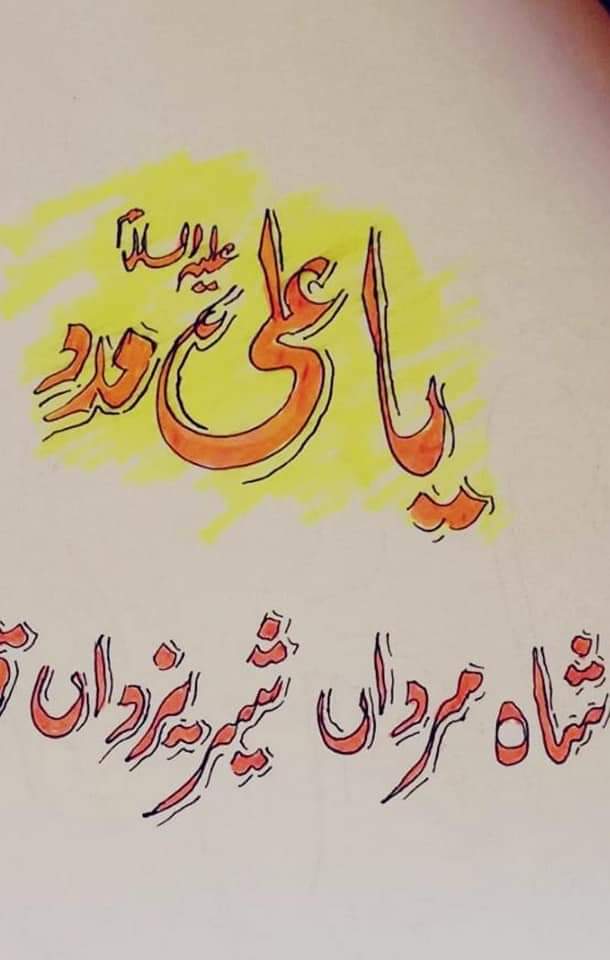 یا علیؑ مدد
علیہ السلام
شاہ مرداں شیر یزداں